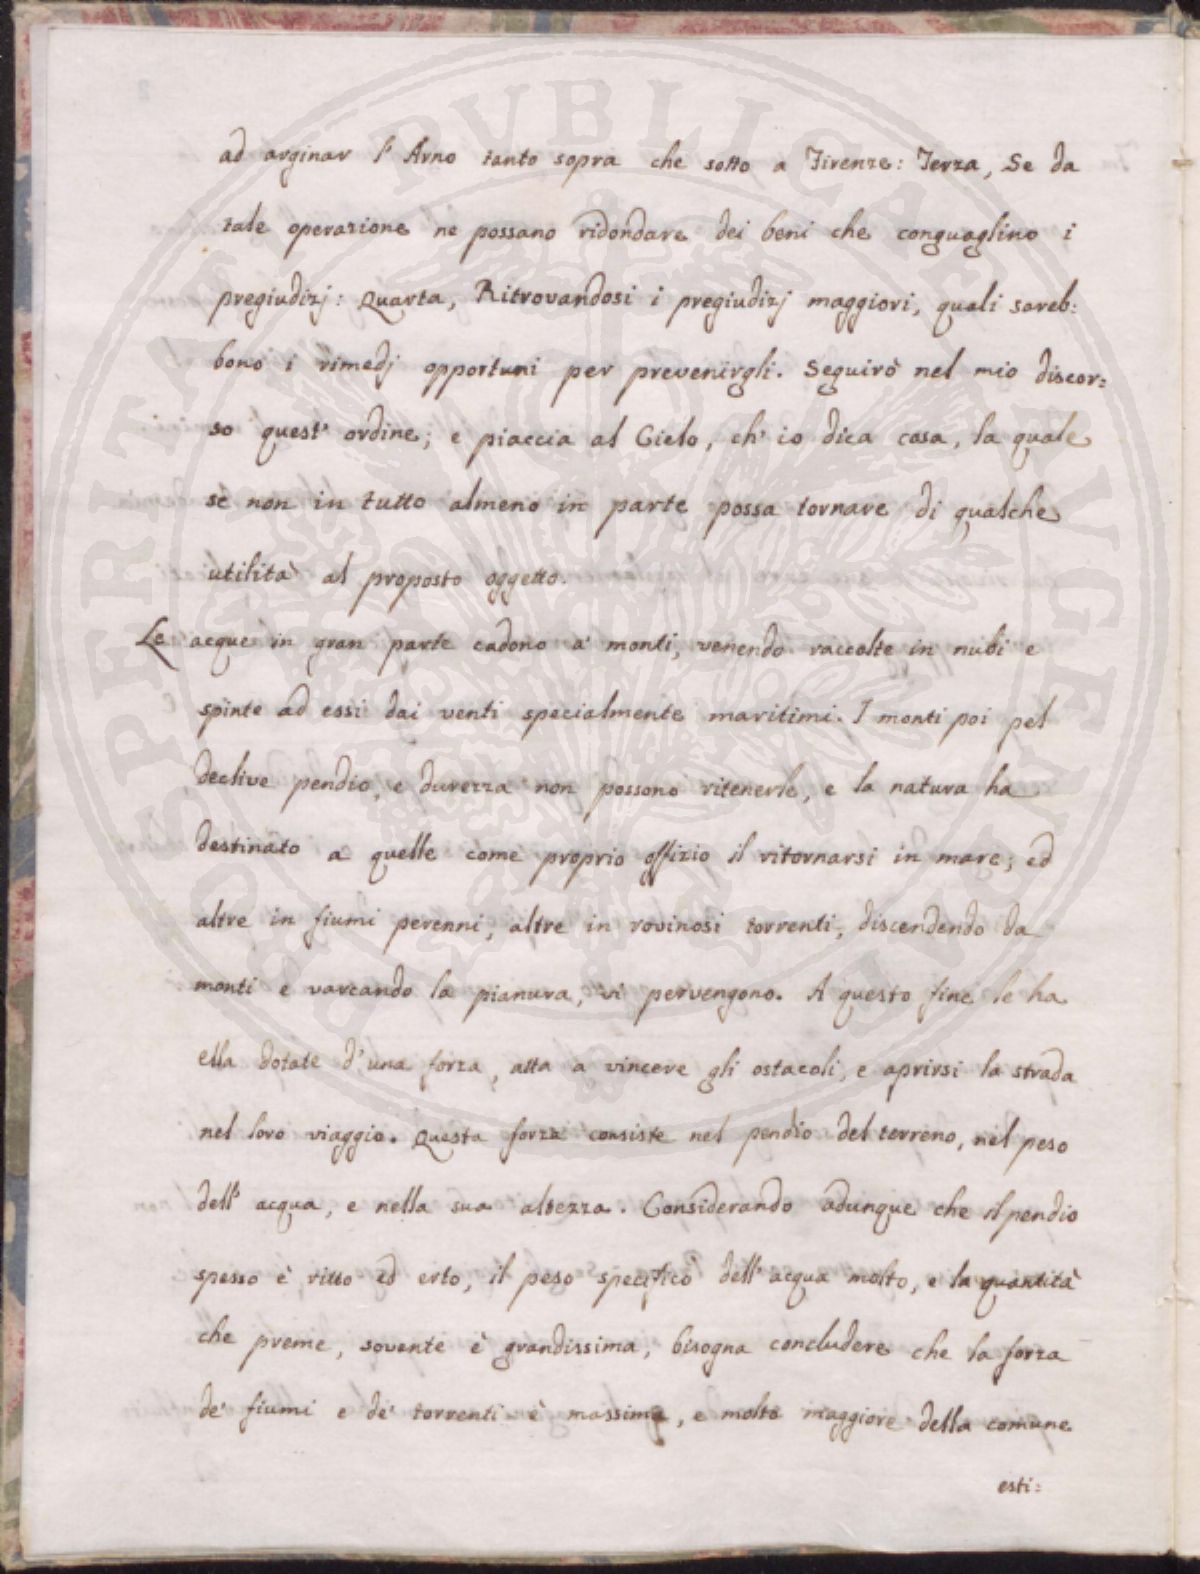 ad arginar l' Arno tanto sopra che sotto a Firenze: Terza, Se da
tale operazione ne possano ridondare dei beni che conguaglino i
pregiudizj: Quarta, Ritrovandosi i pregiudizj maggiori, quali sareb:
bono i rimedj opportuni per prevenirgli. Seguirò nel mio discor:
so quest' ordine; e piaccia al Cielo, ch' io dica cosa, la quale
se non in tutto almeno in parte possa tornare di qualche
utilità al proposto oggetto.
Le acque in gran parte cadono a' monti, venendo raccolte in nubi e
spinte ad essi dai venti specialmente maritimi. I monti poi pel
declive pendio, e durezza non possono ritenerle, e la natura ha
destinato a quelle come proprio offizio il ritornarsi in mare; ed
altre in fiumi perenni, altre in rovinosi torrenti, discendendo da
monti e varcando la pianura, vi pervengono. A questo fine le ha
ella dotate d' una forza, atta a vincere gli ostacoli, e aprirsi la strada
nel loro viaggio. Questa forza consiste nel pendio del terreno, nel peso
dell' acqua, e nella sua altezza. Considerando adunque che il pendio
spesso è ritto ed erto, il peso specifico dell' acqua molto, e la quantità
che preme, sovente è grandissima, bisogna concludere che la forza
de' fiumi e de' torrenti è massima, e molto maggiore della comune
esti:
PROSPERITATI PUBLICAE AUGENDAE